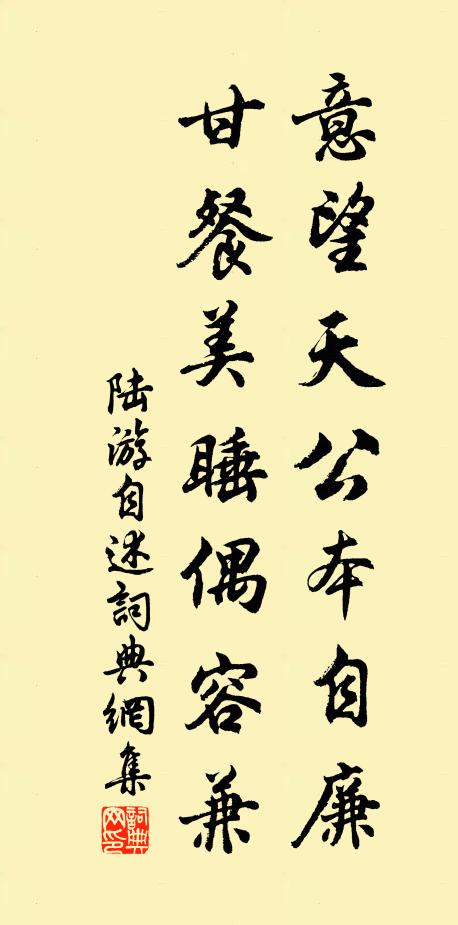 意望天公本自廉
甘餐美睡偶容兼
陆游自述詞典網集
詞典网印